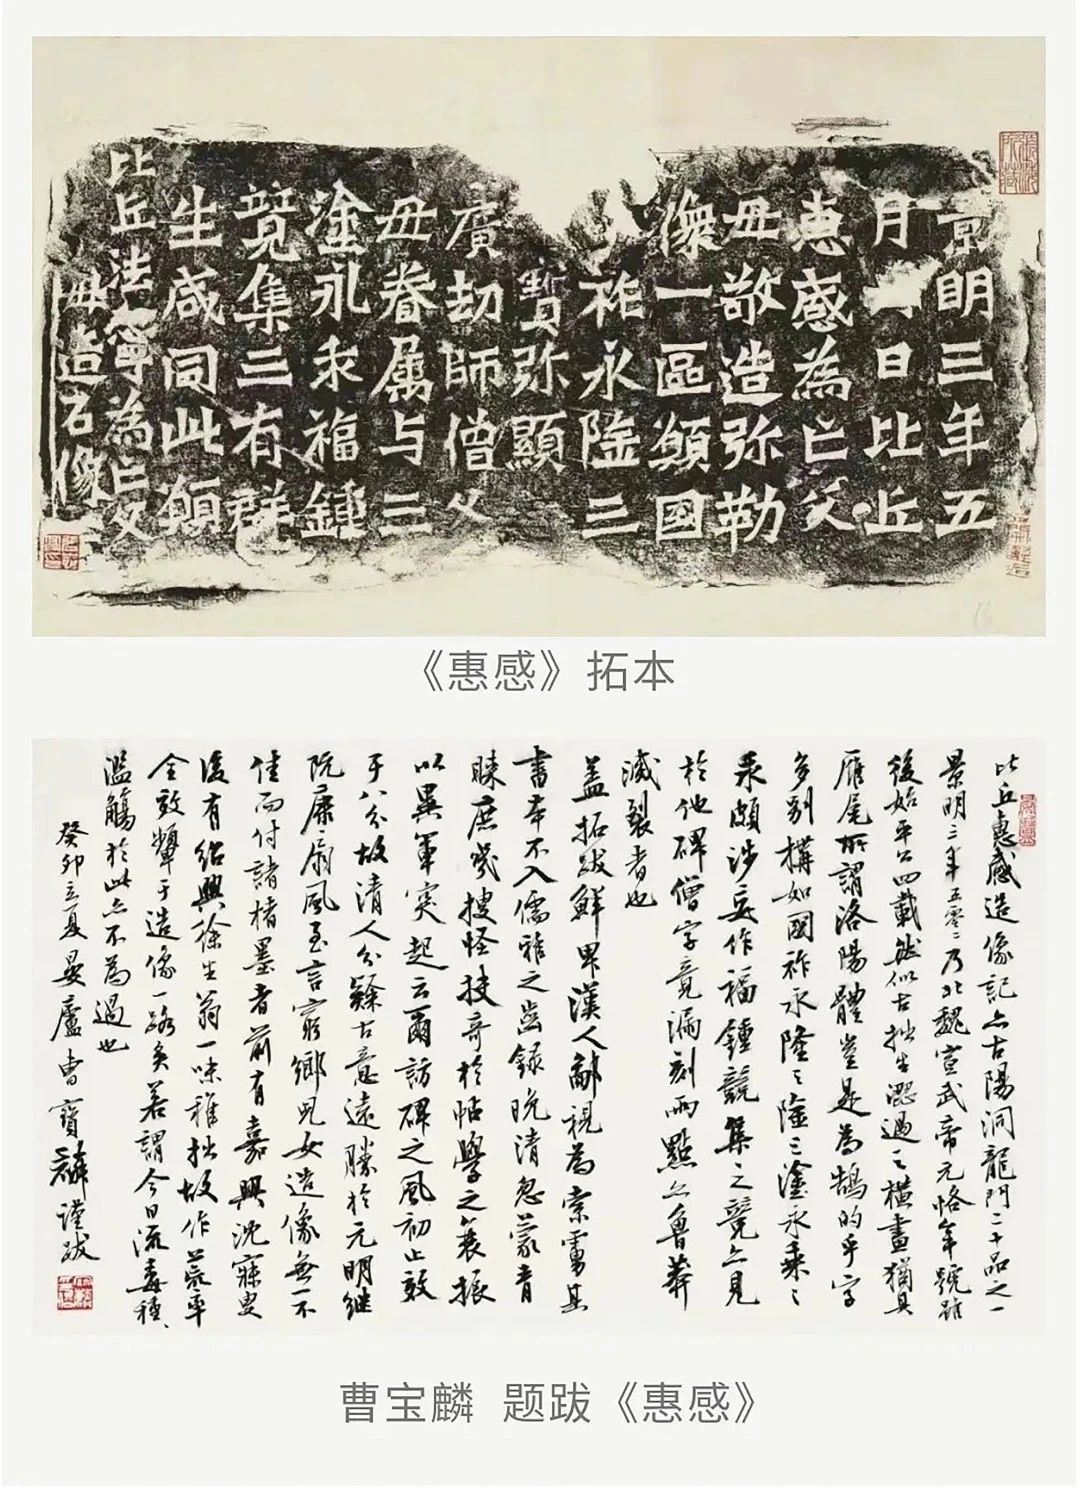 景明三年五
月日比丘
惠感為亡父
母敬造弥勒
像一區願國
祚永隆三
寶弥顯
廣劫師僧父
母眷属与三
塗永乖福鍾
競集三有群
生咸同此願
比丘法寧為亡父
母造石像
《惠感》拓本
比丘惠感造像記亦古陽洞龍門二十品之一
景明三年五零二乃北魏宣武帝元恪年號雖
後始平公四載然似古拙生澀過之橫畫猶具
雁尾所謂洛陽體豈是為鵠的乎字
多别構如國祚永隆之隆三塗永乖之
乖頗涉妄作福鍾競集之競亦見
於他碑僧字竟漏刻兩點亦魯莽
滅裂者也
蓋拓跋鮮卑漢人鄙視為索虜其
書本不入儒雅之齒錄晚清忽蒙青
睞庶幾搜怪技奇於帖學之衰振
以異軍突起云爾訪碑之風初止效
于八分故清人分隸古意遠勝於元明繼
阮康扇風至言窮鄉兒女造像無一不
佳而付諸楮墨者前有嘉興沈寐叟
後有紹興徐生翁一味稚拙故作
全效顰于造像一路矣若謂今日流毒種種
濫觴於此亦不為過也
癸卯立夏晏廬曹寶麟謹跋
曹宝麟 题跋《惠感》